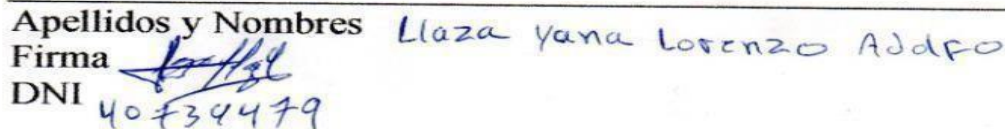 Apellidos y Nombres Llaza Yana Lorenzo Adolfo
Firma
DNI 40734479